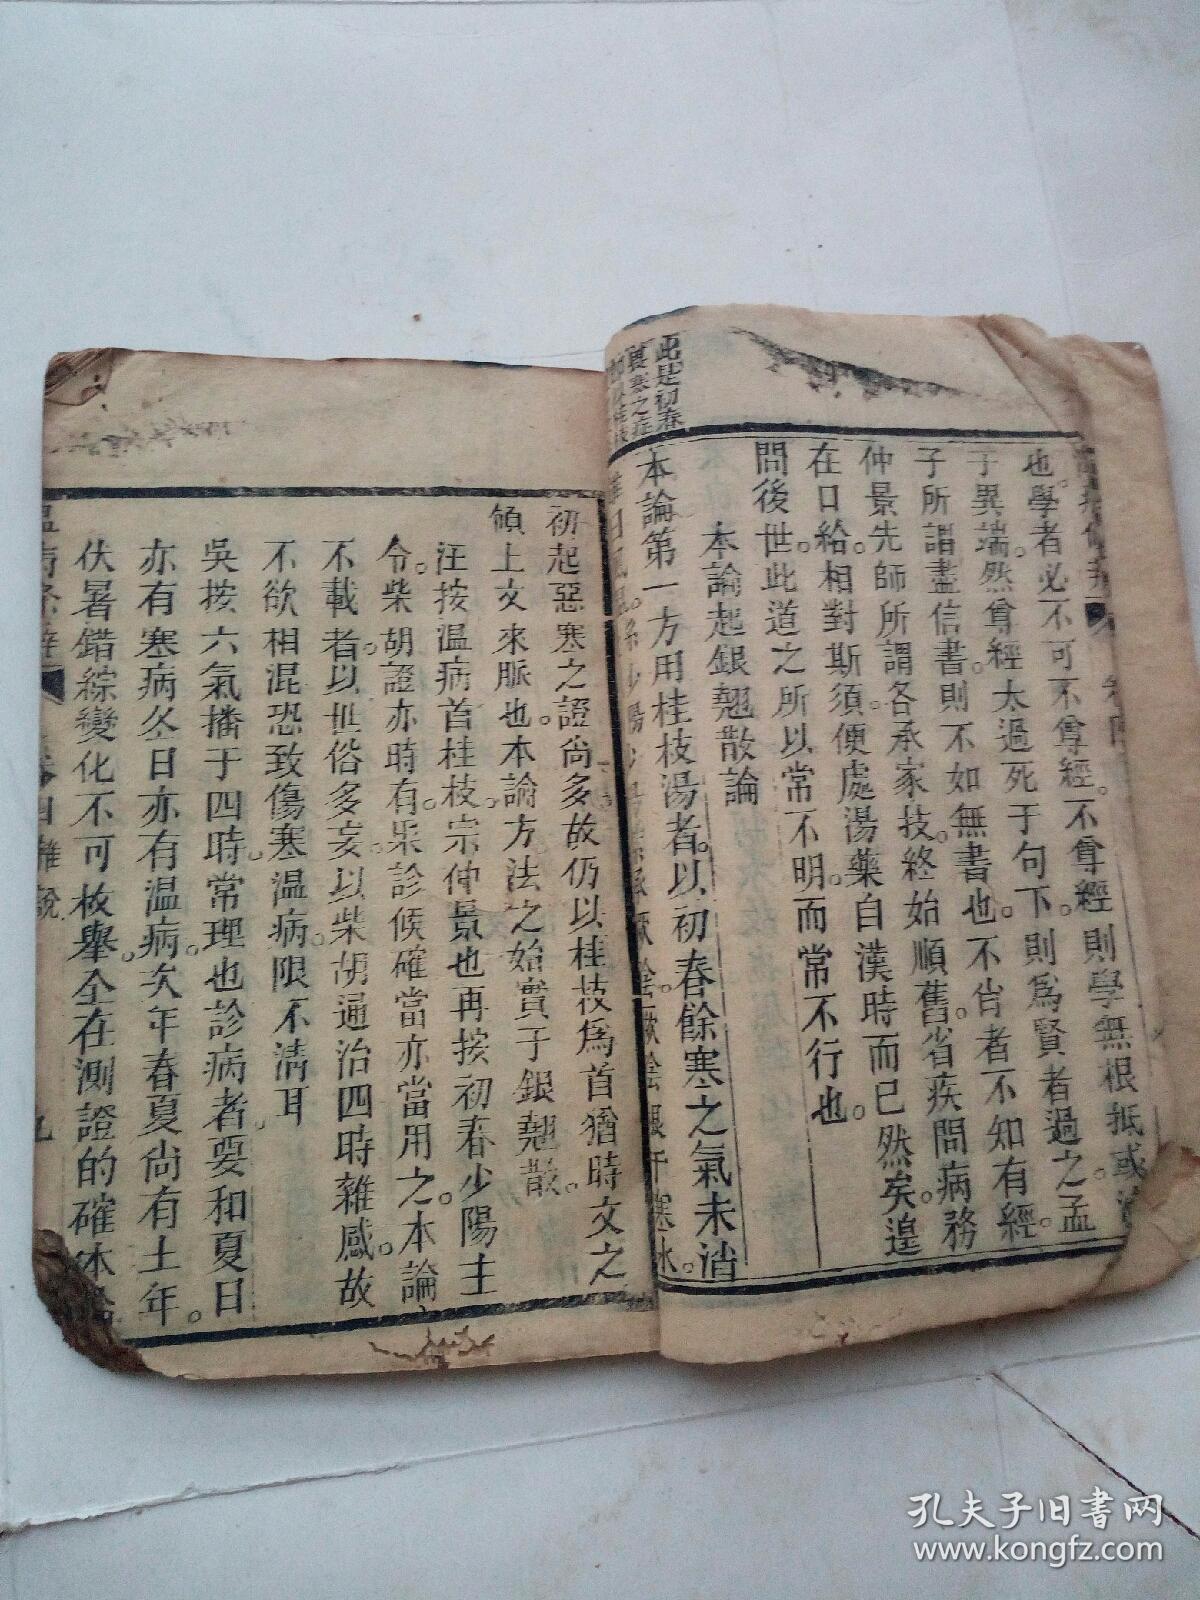 也。學者必不可不尊經。不尊經則學無根抵或
于異端。然尊經太過死于句下。則爲賢者過之。孟
子所謂盡信書。則不如無書也。不肖者不知有經
仲景先師所謂各承家技。終始順舊。省疾問病務
在口給。相對斯須。便處湯藥自漢時而已然矣。遑
問後世。此道之所以常不明。而常不行也。
本論起銀翹散論
本論第一方用桂枝湯者。以初春餘寒之氣未消
此是初春
初起惡寒之證尚多。故仍以桂枝爲首猶時文之
領上文來脈也。本論方法之始實于銀翹散。
汪按温病首桂枝。宗仲景也再按初春少陽主
令。柴胡證亦時有。果診候確當亦當用之。本論
不載者。以世俗多妄。以柴胡通治四時雜感。故
不欲相混恐致傷寒温病。限不清耳
吳按六氣播于四時。常理也診病者。要和夏日
亦有寒病冬日亦有温病。次年春夏尚有土年。
伏暑錯綜變化不可枚舉。全在測證的確
四雜說
孔夫子旧书网
www.kongfz.com